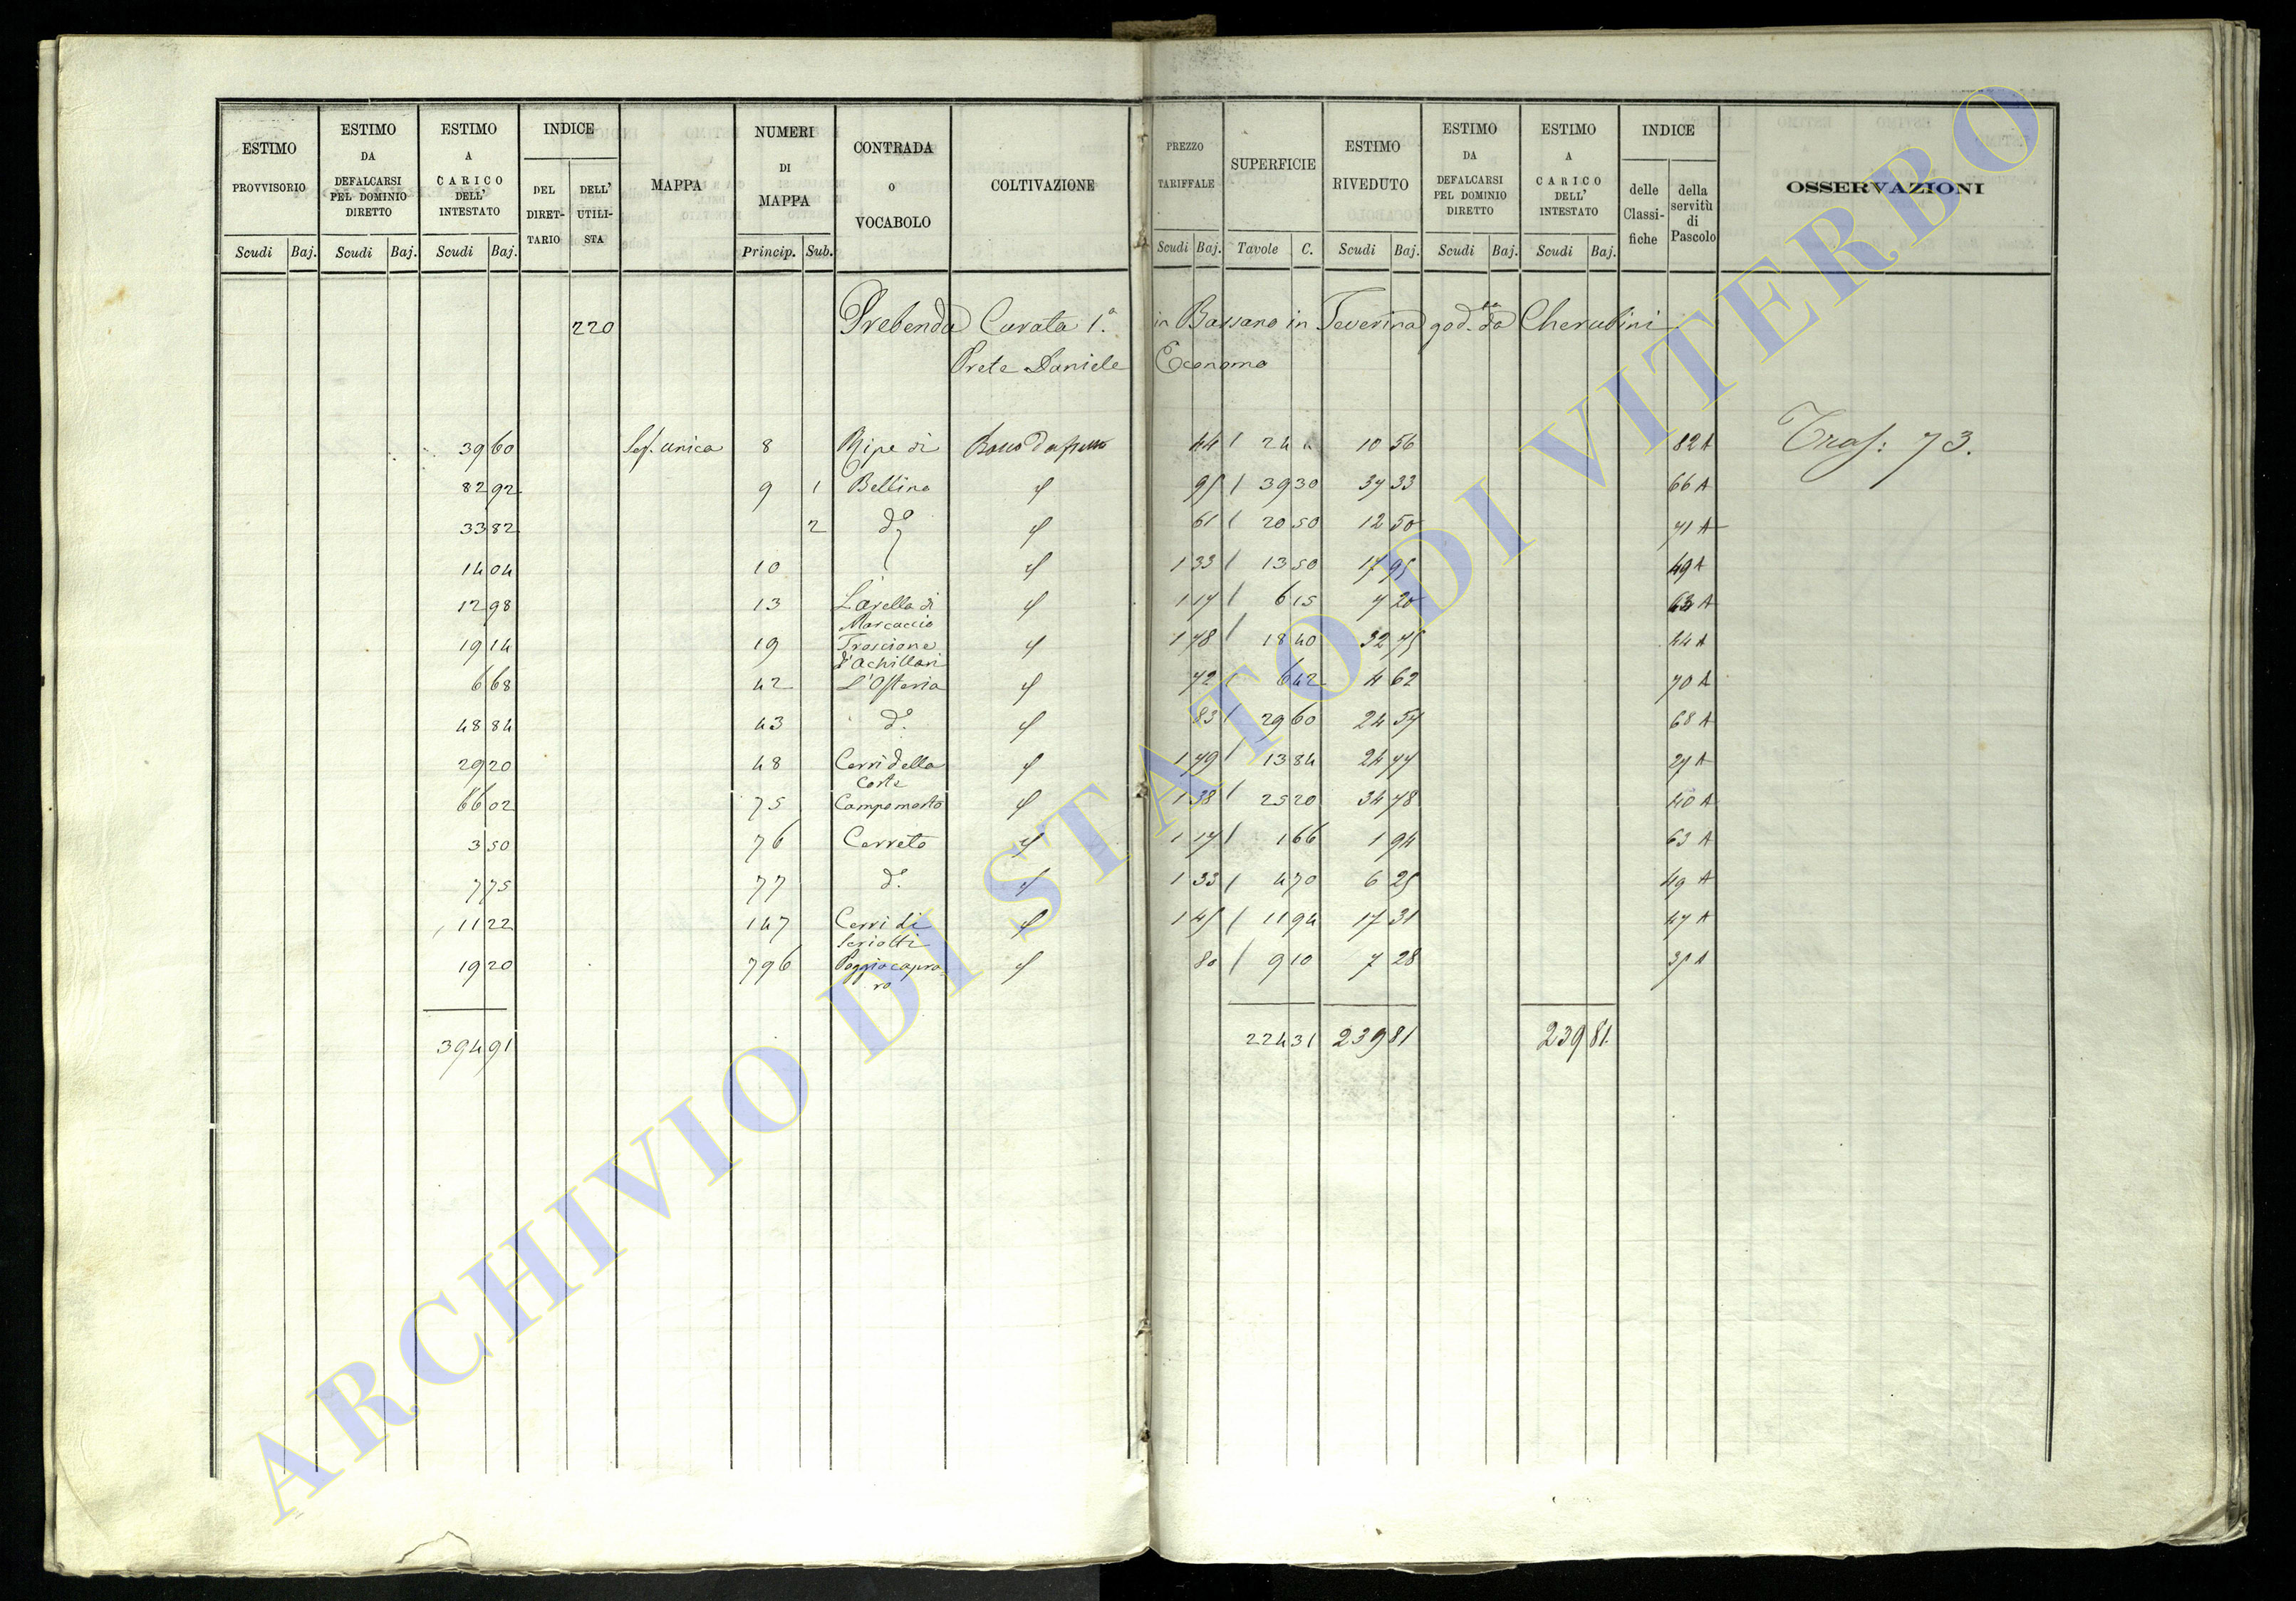 ESTIMO PROVVISORIO Scudi Baj.
ESTIMO DA DEFALCARSI PEL DOMINIO DIRETTO Scudi Baj.
ESTIMO A CARICO DELL' INTESTATO Scudi Baj.
INDICE DEL DIRET-TARIO DELL' UTILI-STA
MAPPA
NUMERI DI MAPPA Princip. Sub.
CONTRADA O VOCABOLO
COLTIVAZIONE
PREZZO TARIFFALE Scudi Baj.
SUPERFICIE Tavole C.
ESTIMO RIVEDUTO Scudi Baj.
ESTIMO DA DEFALCARSI PEL DOMINIO DIRETTO Scudi Baj.
ESTIMO A CARICO DELL' INTESTATO Scudi Baj.
INDICE delle Classi-fiche della servitù di Pascolo
OSSERVAZIONI
220 Prebenda Curata 1.ª in Bassano in Teverina god.ta da Cherubini
Prete Daniele Economo
39 60 Sez. unica 8 Ripe di 44 24 10 56 82 A Tras: 73.
82 92 9 1 Bellino 95 39 30 37 33 66 A
33 82 2 dº 61 20 50 12 50 71 A
14 04 10 1 33 13 50 17 95 49 A
12 98 13 L'arella di 1 17 6 15 7 20 63 A
Marcaccio
19 14 19 Troscione 1 78 18 40 32 75 44 A
d'Achillari
6 68 42 L'Osteria 72 6 42 4 62 70 A
48 84 43 dº. 83 29 60 24 57 68 A
29 20 48 Cerri della 1 79 13 84 24 77 27 A
Coste
66 02 75 Campomorto 1 38 25 20 34 78 40 A
3 50 76 Cerreto 1 17 1 66 1 94 63 A
7 75 77 dº. 1 33 4 70 6 25 49 A
11 22 147 Cerri di 1 45 11 94 17 31 47 A
Seriotti
19 20 796 Poggio capra- 80 9 10 7 28 35 A
ro
394 91 224 31 239 81 239 81
ARCHIVIO DI STATO DI VITERBO